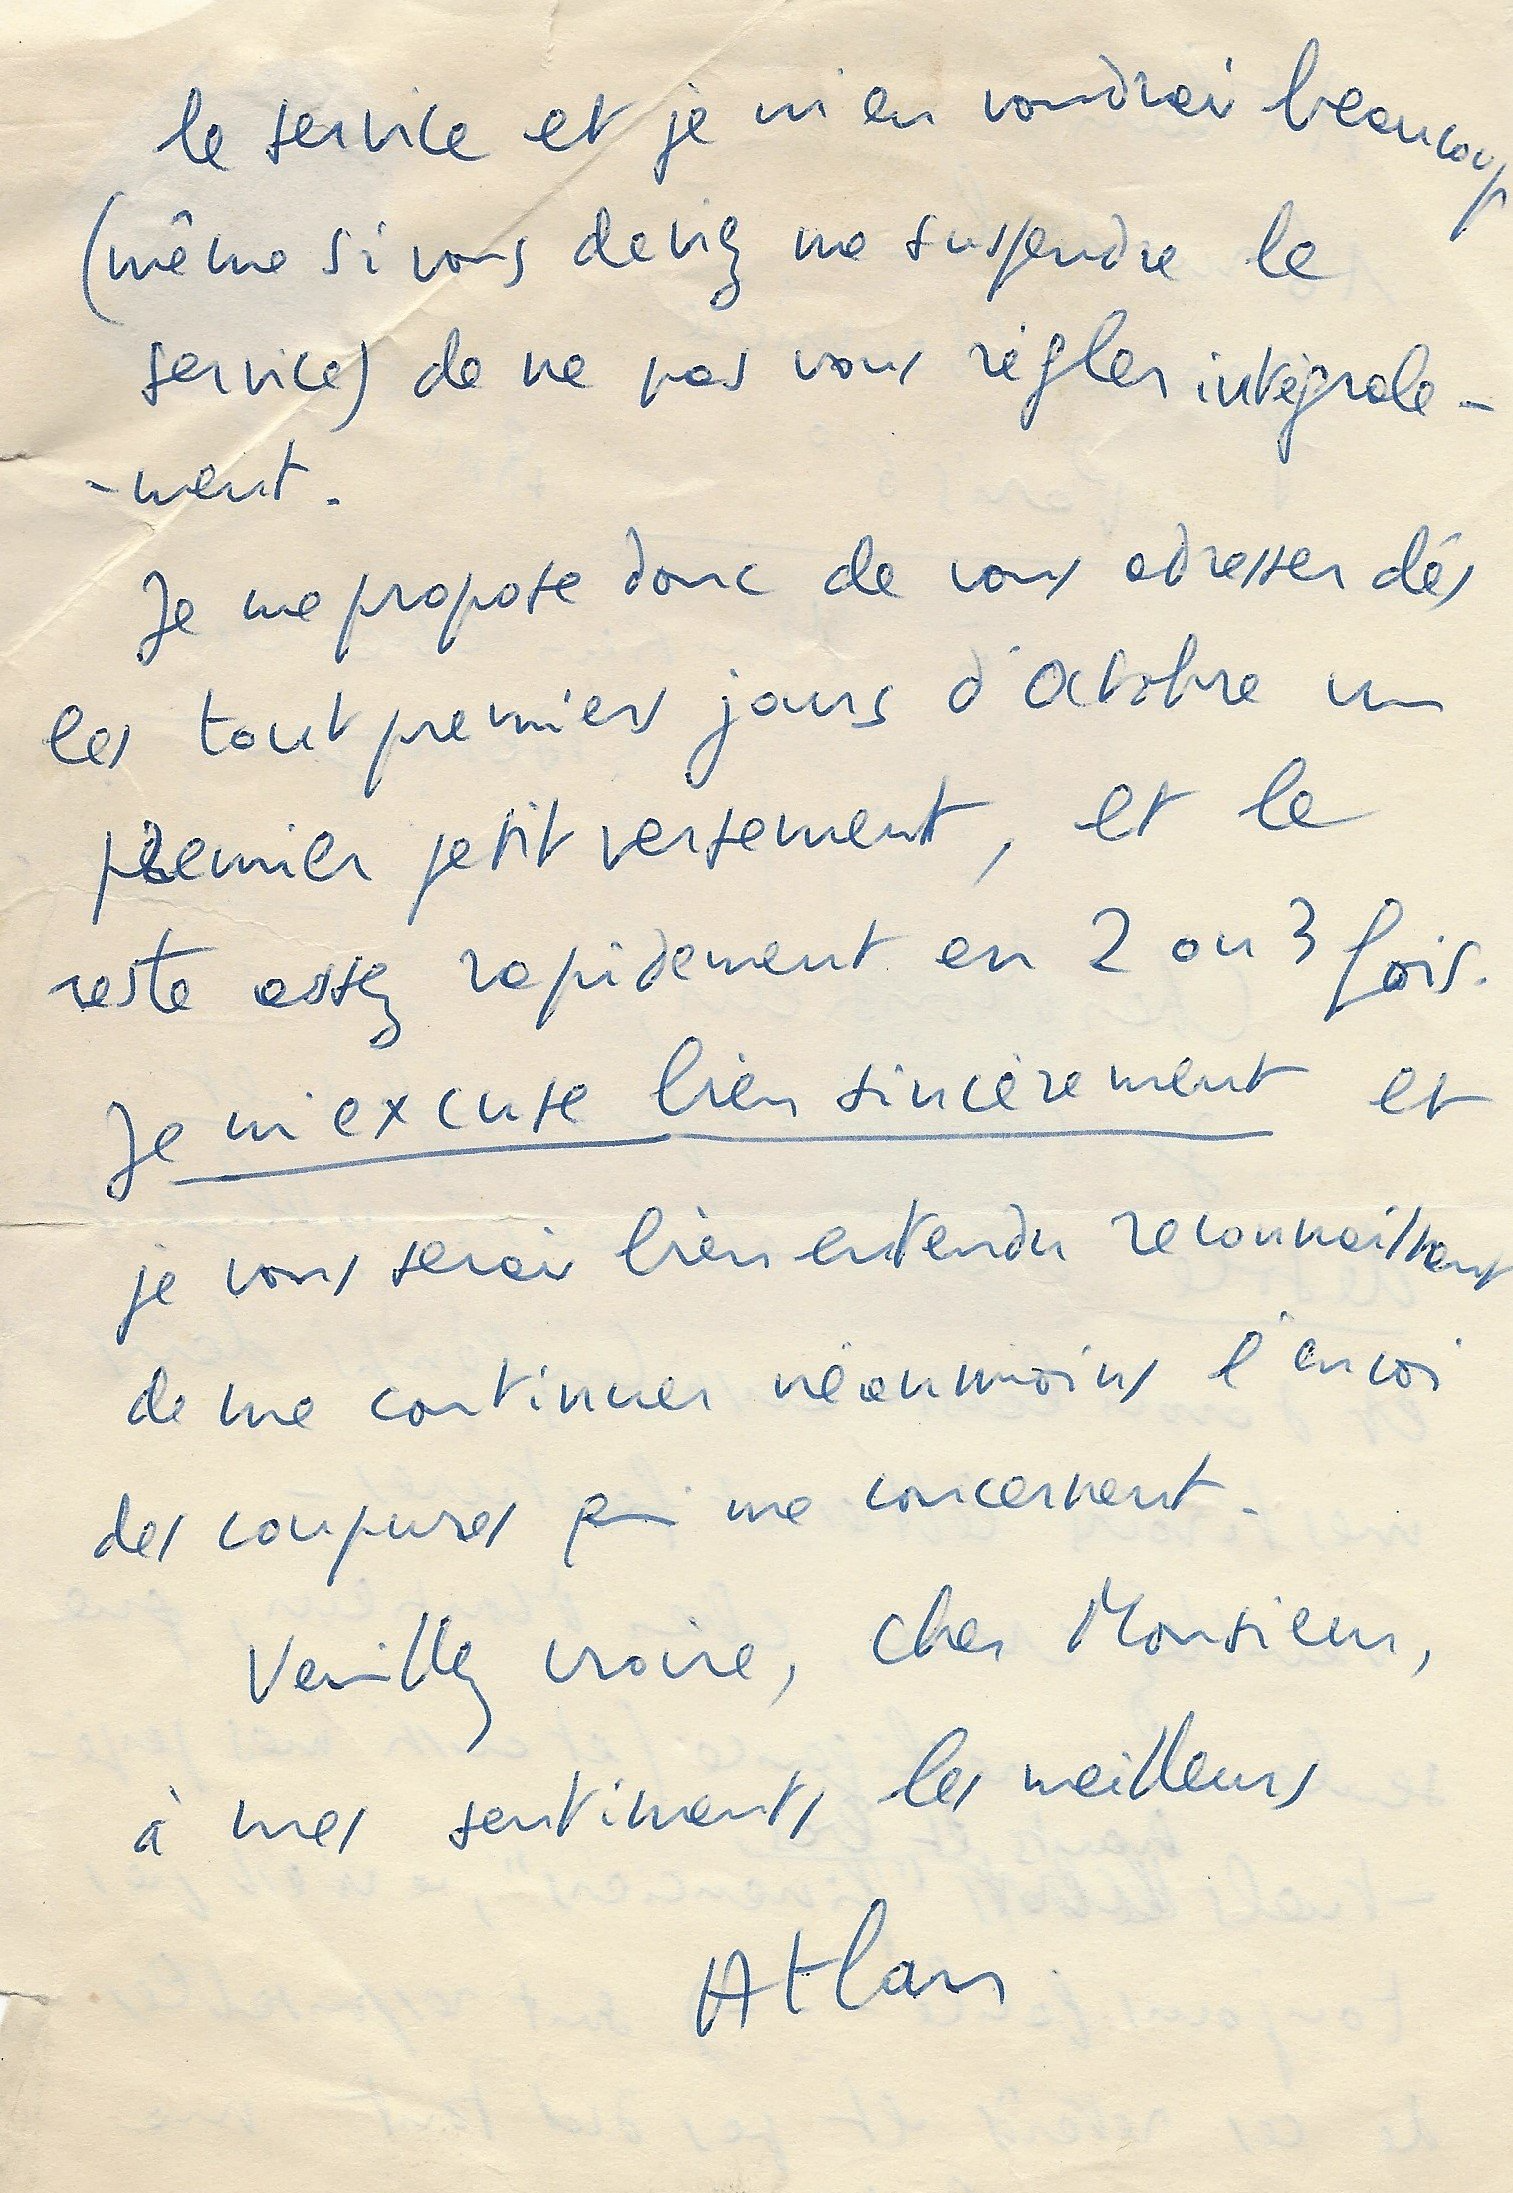 le service et je m'en voudrai beaucoup
(même si vous deviez me suspendre le
service) de ne pas vous régler intégrale-
-ment.
Je me propose donc de vous adresser dès
les tout premiers jours d'Octobre un
premier petit versement, et le
reste assez rapidement en 2 ou 3 fois.
Je m'excuse bien sincèrement et
je vous serai bien entendu reconnaissant
de me continuer néanmoins l'envoi
des coupures qui me concernent.
Veuillez croire, cher Monsieur,
à mes sentiments les meilleurs
Atlan